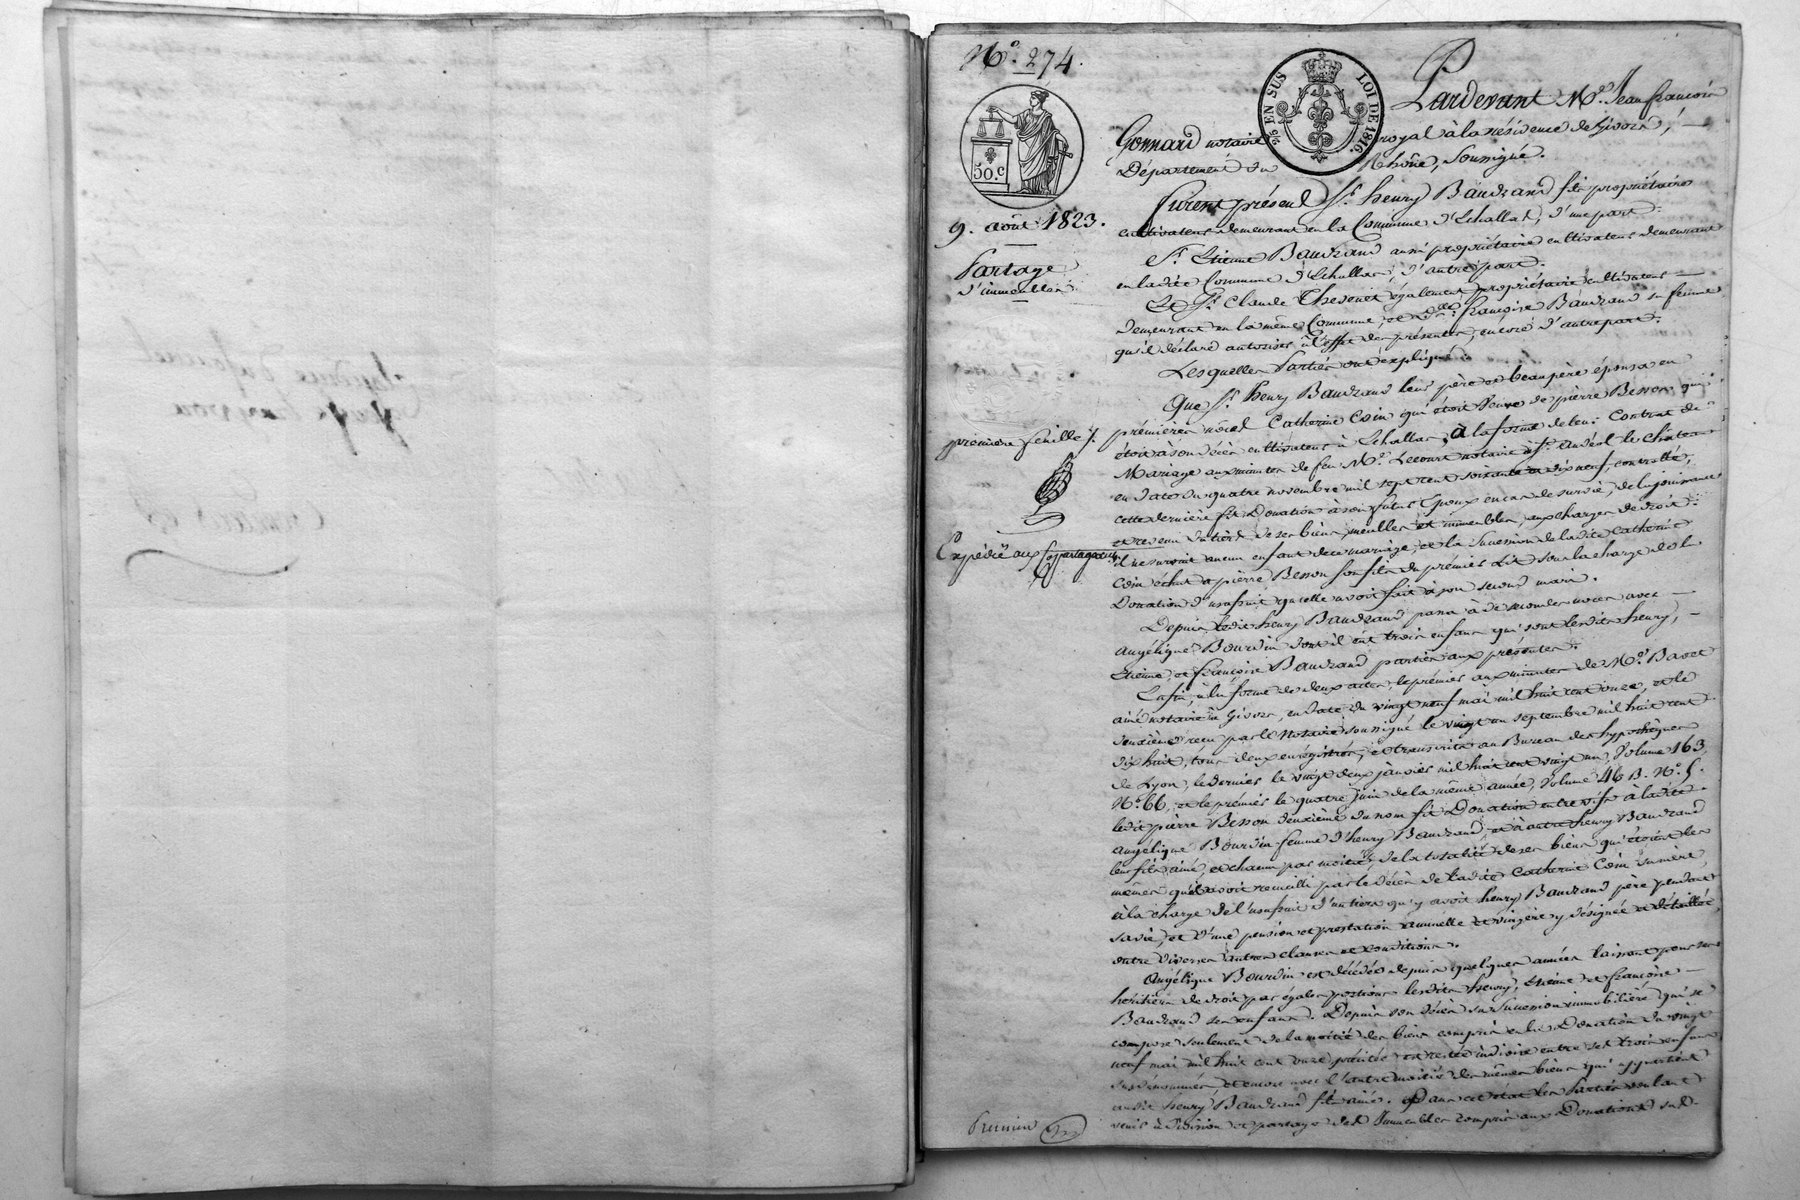 N.º 274.
2/5 EN SUS LOI DE 1816.
50.c
9. août 1823.
Partage
d'immeubles
première feuille
Expédié aux Copartageants
Premier
Pardevant M.e Jean françois
Gonnard notaire royal à la résidence de Givors,
Département du Rhône, soussigné.
furent présens S.r henry Baudrand fils propriétaire
cultivateur demeurant en la Commune d'Echallas, d'une part.
S.r Etienne Baudrand aussi propriétaire cultivateur demeurant
en ladite Commune d'Echallas, d'autre part.
Et S.r Claude Thevenet également propriétaire cultivateur
demeurant en la même Commune, et françoise Baudrand sa femme
qu'il déclare autoriser à l'effet des présentes, encore d'autre part.
Lesquelles Parties ont expliqué:
Que S.r henry Baudrand leur père et beaupère épousa en
premières nôces Catherine Coin qui étoit Veuve de pierre Besson qui
étoit à son décès cultivateur à Echallas, à la forme de leur Contrat de
Mariage aux minutes de feu M.e Lecourt notaire à S.t andéol le château
en date du quatre novembre mil sept cent soixante et dix neuf, contrôlé,
cette dernière fit Donation à son futur Epoux en cas de survie, de la jouissance
et revenu du tiers de ses biens, meubles et immeubles, aux charges de droit.
il ne survint aucun enfant de ce mariage, et la succession de ladite Catherine
Coin échut à pierre Besson son fils du premier Lit sous la charge de la
Donation d'usufruit qu'elle avoit fait à son second mari.
Depuis ledit henry Baudrand passa à de secondes noces avec
angélique Bourdin dont il eut trois enfans qui sont lesdits henry,
Etienne et françoise Baudrand parties aux présentes.
Enfin, à la forme de deux actes, le premier aux minutes de M.e Bavet
ainé notaire à Givors, en date du vingt neuf mai mil huit cent onze, et le
deuxième reçu par le Notaire soussigné le vingt un septembre mil huit cent
dix huit, tous deux enrégistrés, et transcrits au Bureau des hypothèques
de Lyon, le dernier le vingt deux janvier mil huit cent vingt un, Volume 163,
N.º 66, et le premier le quatre juin de la même année, Volume 46 B. N.º 5.
ledit pierre Besson deuxième du nom fit Donation entre vifs à ladite
angélique Bourdin femme d'henry Baudrand, et à autre henry Baudrand
leur fils ainé, et chacun par moitié, de la totalité de ses biens qui étoient les
mêmes qu'il avoit recueilli par le décès de ladite Catherine Coin sa mère,
à la charge de l'usufruit d'un tiers qu'y avoit henry Baudrand père pendant
sa vie, et d'une pension et prestation annuelle et viagère y désignée et détaillée,
outre diverses autres clauses et conditions.
Angélique Bourdin est décédée depuis quelques années laissant pour ses
héritiers de droit par égales portions lesdits henry, Etienne et françoise
Baudrand ses enfans. Depuis son décès sa succession immobilière qui se
compose seulement de la moitié des biens compris en la Donation du vingt
neuf mai mil huit cent onze précitée est restée indivise entre ses trois enfans
susdénommés, et encore avec l'autre moitié des mêmes biens qui appartient
audit henry Baudrand fils ainé. Dans cet état les Parties voulant
venir à division et partage des Immeubles compris aux Donations sus